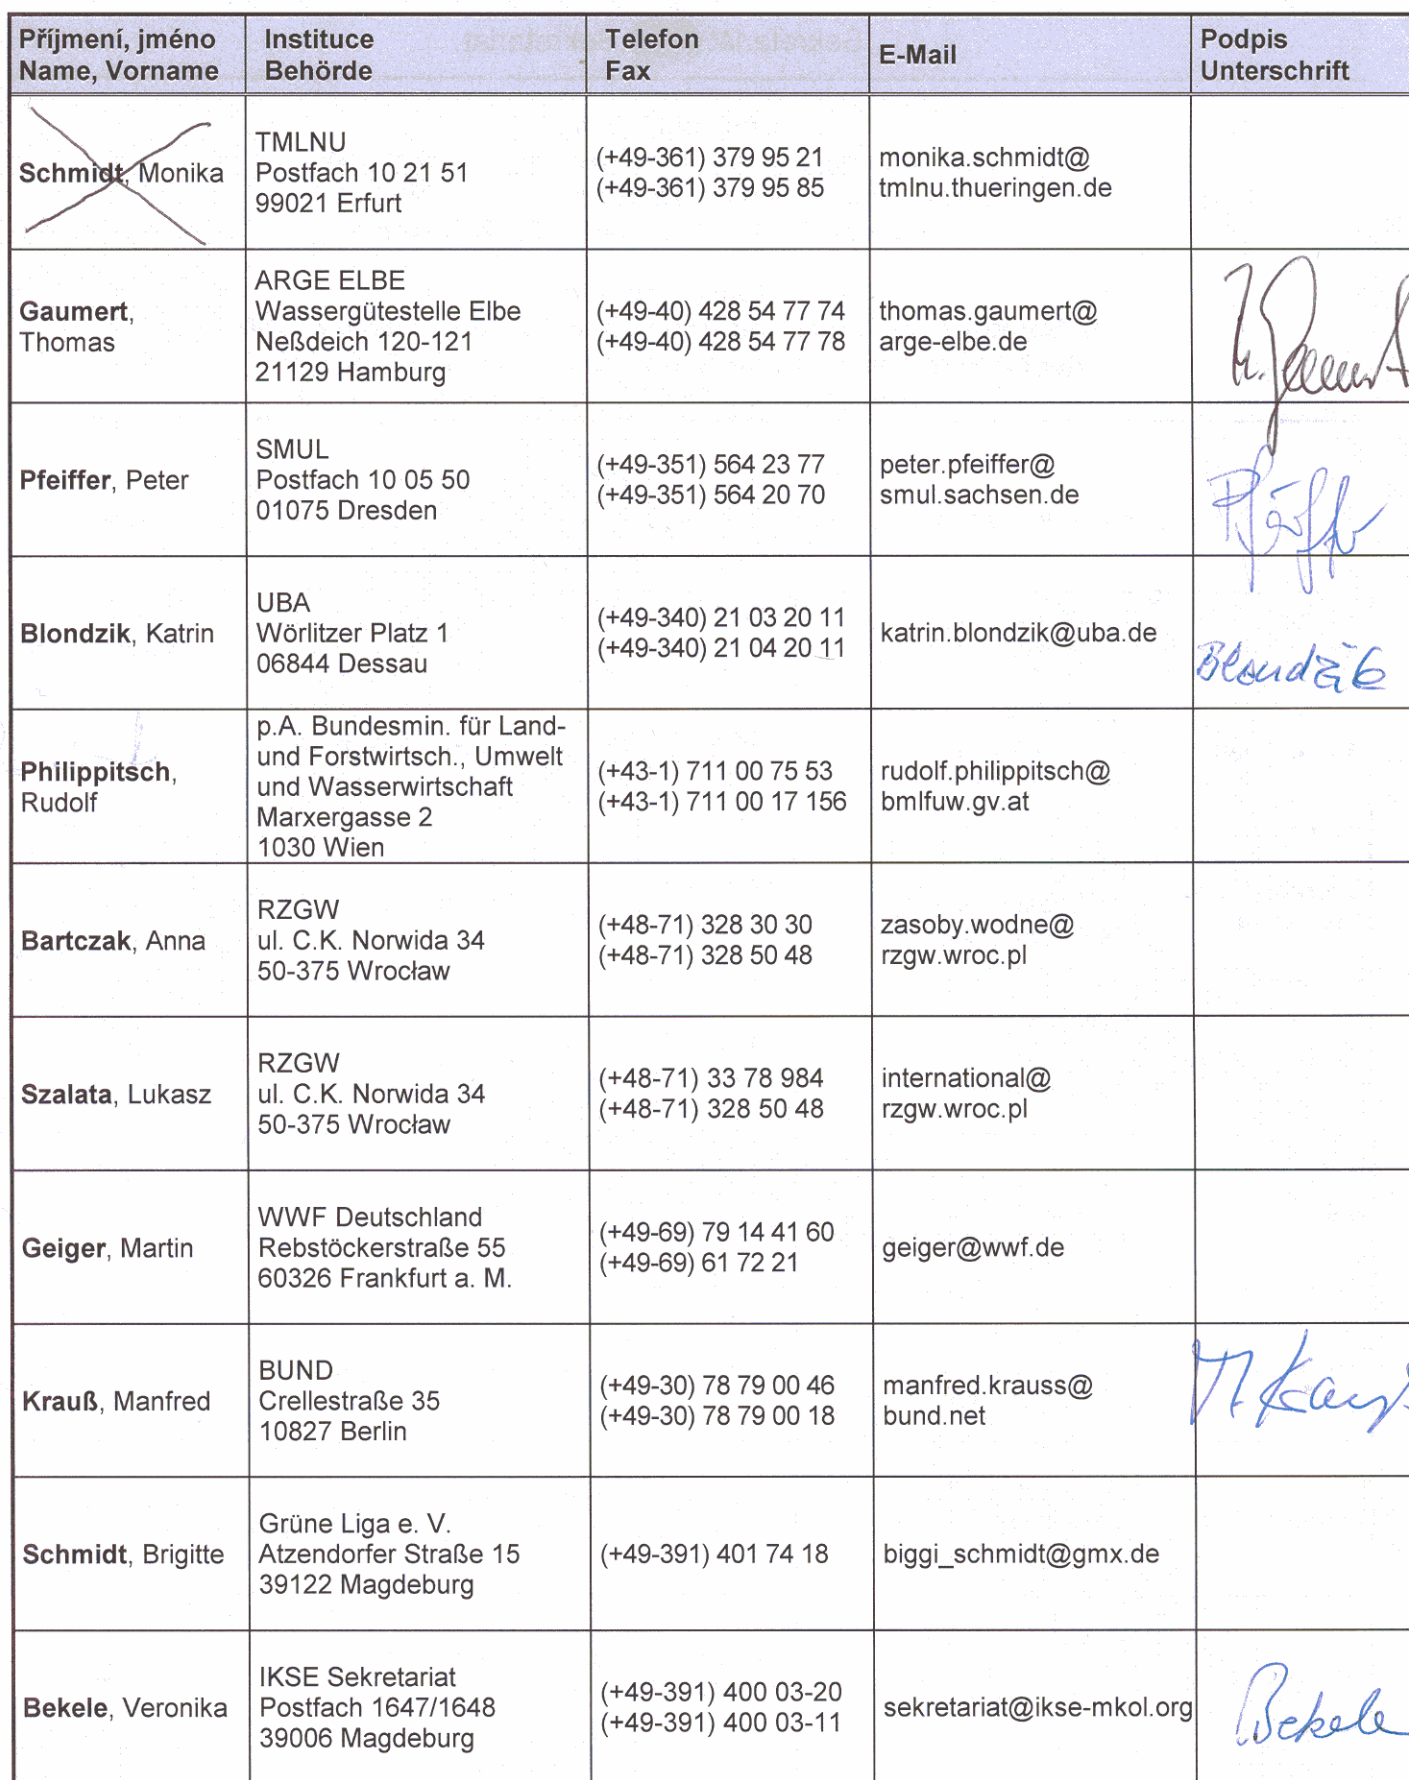 Příjmení, jméno
Name, Vorname
Instituce
Behörde
Telefon
Fax
E-Mail
Podpis
Unterschrift
Schmidt, Monika
TMLNU
Postfach 10 21 51
99021 Erfurt
(+49-361) 379 95 21
(+49-361) 379 95 85
monika.schmidt@
tmlnu.thueringen.de
Gaumert,
Thomas
ARGE ELBE
Wassergütestelle Elbe
Neßdeich 120-121
21129 Hamburg
(+49-40) 428 54 77 74
(+49-40) 428 54 77 78
thomas.gaumert@
arge-elbe.de
Pfeiffer, Peter
SMUL
Postfach 10 05 50
01075 Dresden
(+49-351) 564 23 77
(+49-351) 564 20 70
peter.pfeiffer@
smul.sachsen.de
Blondzik, Katrin
UBA
Wörlitzer Platz 1
06844 Dessau
(+49-340) 21 03 20 11
(+49-340) 21 04 20 11
katrin.blondzik@uba.de
Blondzik
Philippitsch,
Rudolf
p.A. Bundesmin. für Land-
und Forstwirtsch., Umwelt
und Wasserwirtschaft
Marxergasse 2
1030 Wien
(+43-1) 711 00 75 53
(+43-1) 711 00 17 156
rudolf.philippitsch@
bmlfuw.gv.at
Bartczak, Anna
RZGW
ul. C.K. Norwida 34
50-375 Wrocław
(+48-71) 328 30 30
(+48-71) 328 50 48
zasoby.wodne@
rzgw.wroc.pl
Szalata, Lukasz
RZGW
ul. C.K. Norwida 34
50-375 Wrocław
(+48-71) 33 78 984
(+48-71) 328 50 48
international@
rzgw.wroc.pl
Geiger, Martin
WWF Deutschland
Rebstöckerstraße 55
60326 Frankfurt a. M.
(+49-69) 79 14 41 60
(+49-69) 61 72 21
geiger@wwf.de
Krauß, Manfred
BUND
Crellestraße 35
10827 Berlin
(+49-30) 78 79 00 46
(+49-30) 78 79 00 18
manfred.krauss@
bund.net
M Krauß
Schmidt, Brigitte
Grüne Liga e. V.
Atzendorfer Straße 15
39122 Magdeburg
(+49-391) 401 74 18
biggi_schmidt@gmx.de
Bekele, Veronika
IKSE Sekretariat
Postfach 1647/1648
39006 Magdeburg
(+49-391) 400 03-20
(+49-391) 400 03-11
sekretariat@ikse-mkol.org
Bekele